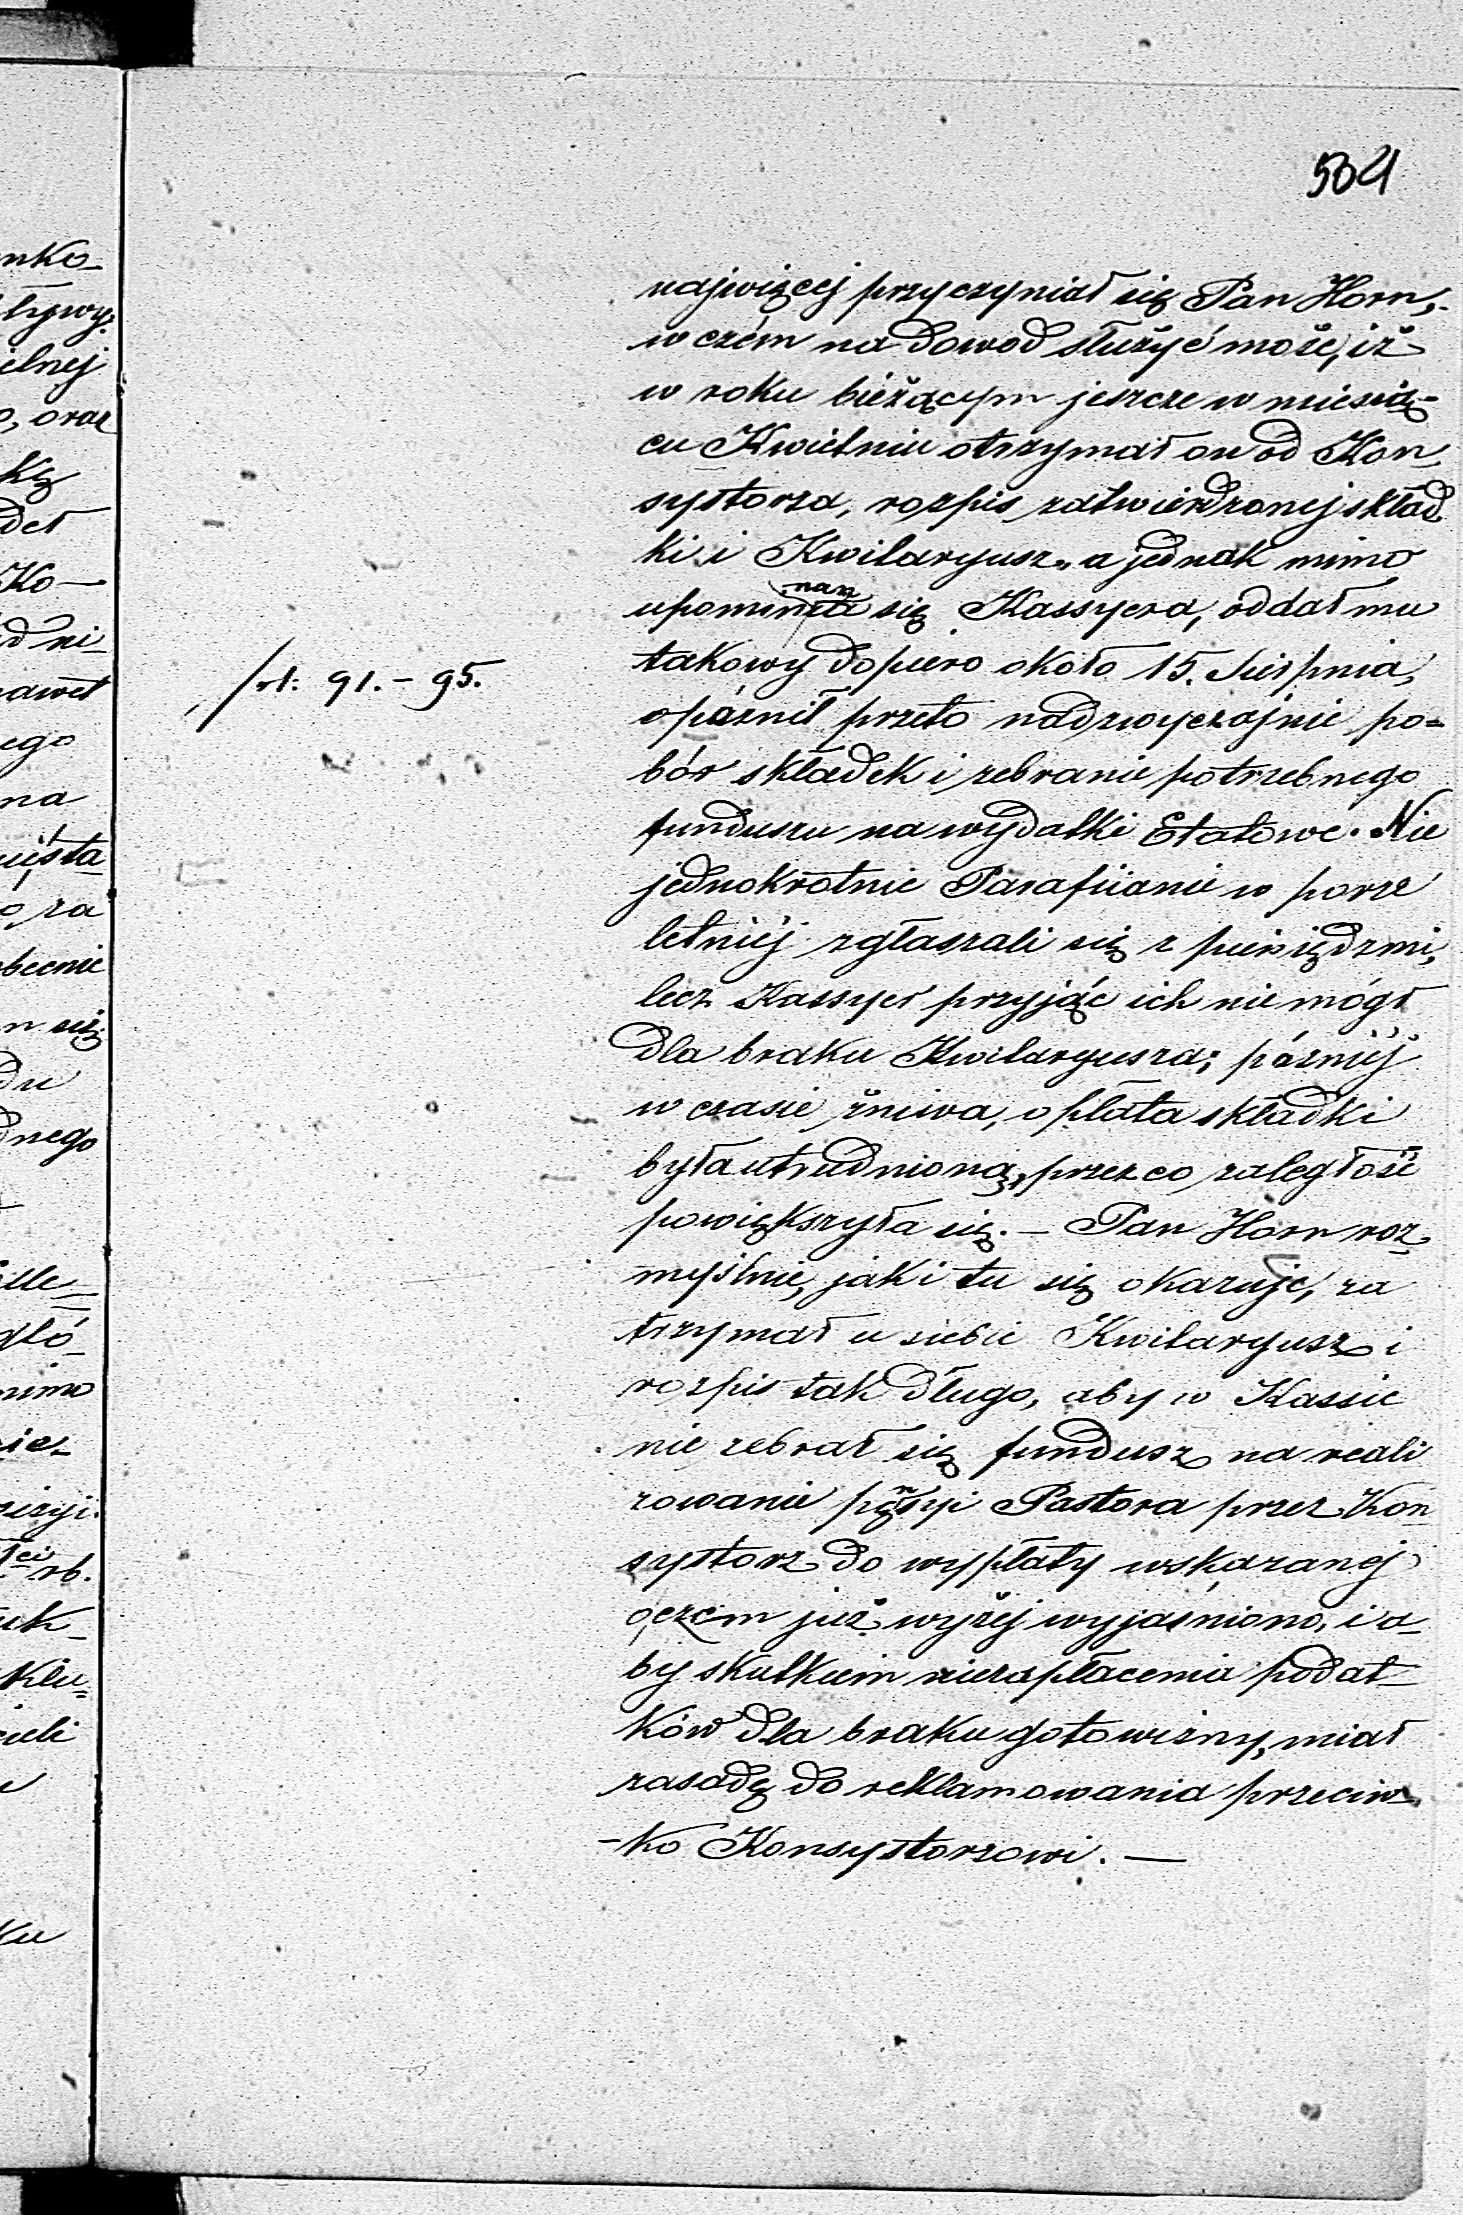 504
najwięcej przyczyniał się Pan Horn,
w czém na dowod służyć może, iż
w roku bieżącym jeszcze w miesią-
cu Kwietniu otrzymał on od Kon-
systorza, rozpis zatwierdzonej skład
ki i Kwitaryusz, a jednak mimo
upominan się Kassyera, oddał mu
takowy dopiero około 15. Sierpnia,
fol: 91.-95.
opóznił przeto nadzwyczajnie po-
bór składek i zebranie potrzebnego
funduszu na wydatki Etatowe. Nie
jednokrotnie Parafianie w porze
letniéj zgłaszali się z pieniędzmi,
lecz Kassyer przyjąc ich nie mógł
dla braku Kwitaryusza; pózniéj
w czasie żniwa, opłata składki
była utrudnioną, przez co zaległość
powiększyła się. – Pan Horn roz-
myślnie, jak i tu się okazuje, za
trzymał u siebie Kwitaryusz i
rozpis tak długo, aby w Kassie
nie zebrał się fundusz na reali
zowanie pensyi Pastora przez Kon-
systorz do wypłaty wskazanej
o czem już wyżéj wyjaśniono, i a-
by skutkiem niezapłacenia podat-
ków dla braku gotowizny, miał
zasadę do reklamowania przeciw-
-ko Konsystorzowi. —
enko-
ilnej
o, oraz
det
Ko-
nawet
ego
na
o za
obecnie
n się
du
dnego
mimo
rb.
Klu-
ieli
ku